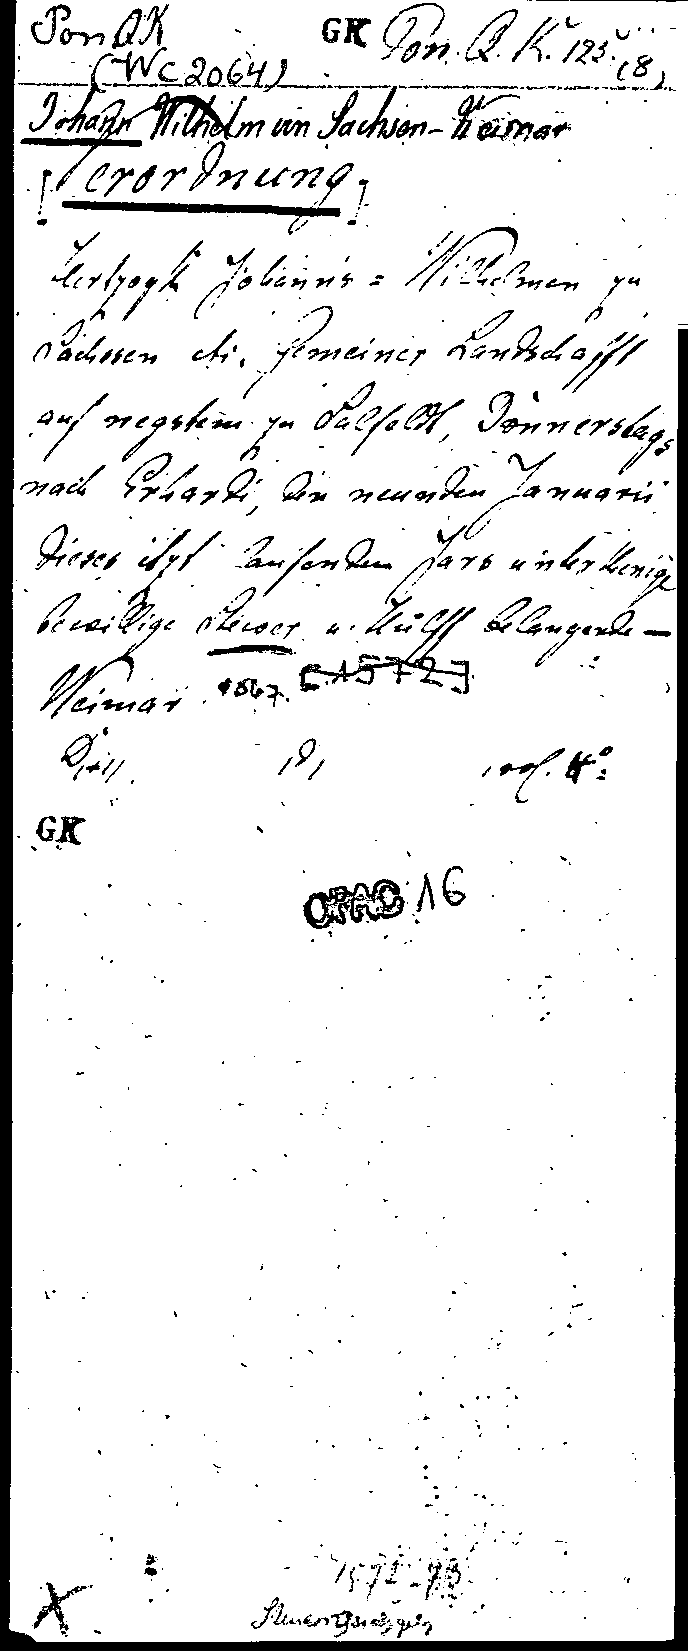 Pon QK GK Pon. Q. K. 123. (8)
(WC 2064)
Johann Wilhelm von Sachsen-Weimar
[Verordnung]
Hertzogk Johanns = Wilhelmen zu
Sachssen etc. gemeiner Landschafft
auf negstem zu Salfeldt, Donnerstags
nach Erhardi, den neunden Januarii
dieses itzt laufenden Jars unterthenige
bewillige Stewer u. Hülff belangende —
Weimar 1567. [1572]
4°
GK
OPAC 16
1572-73
X